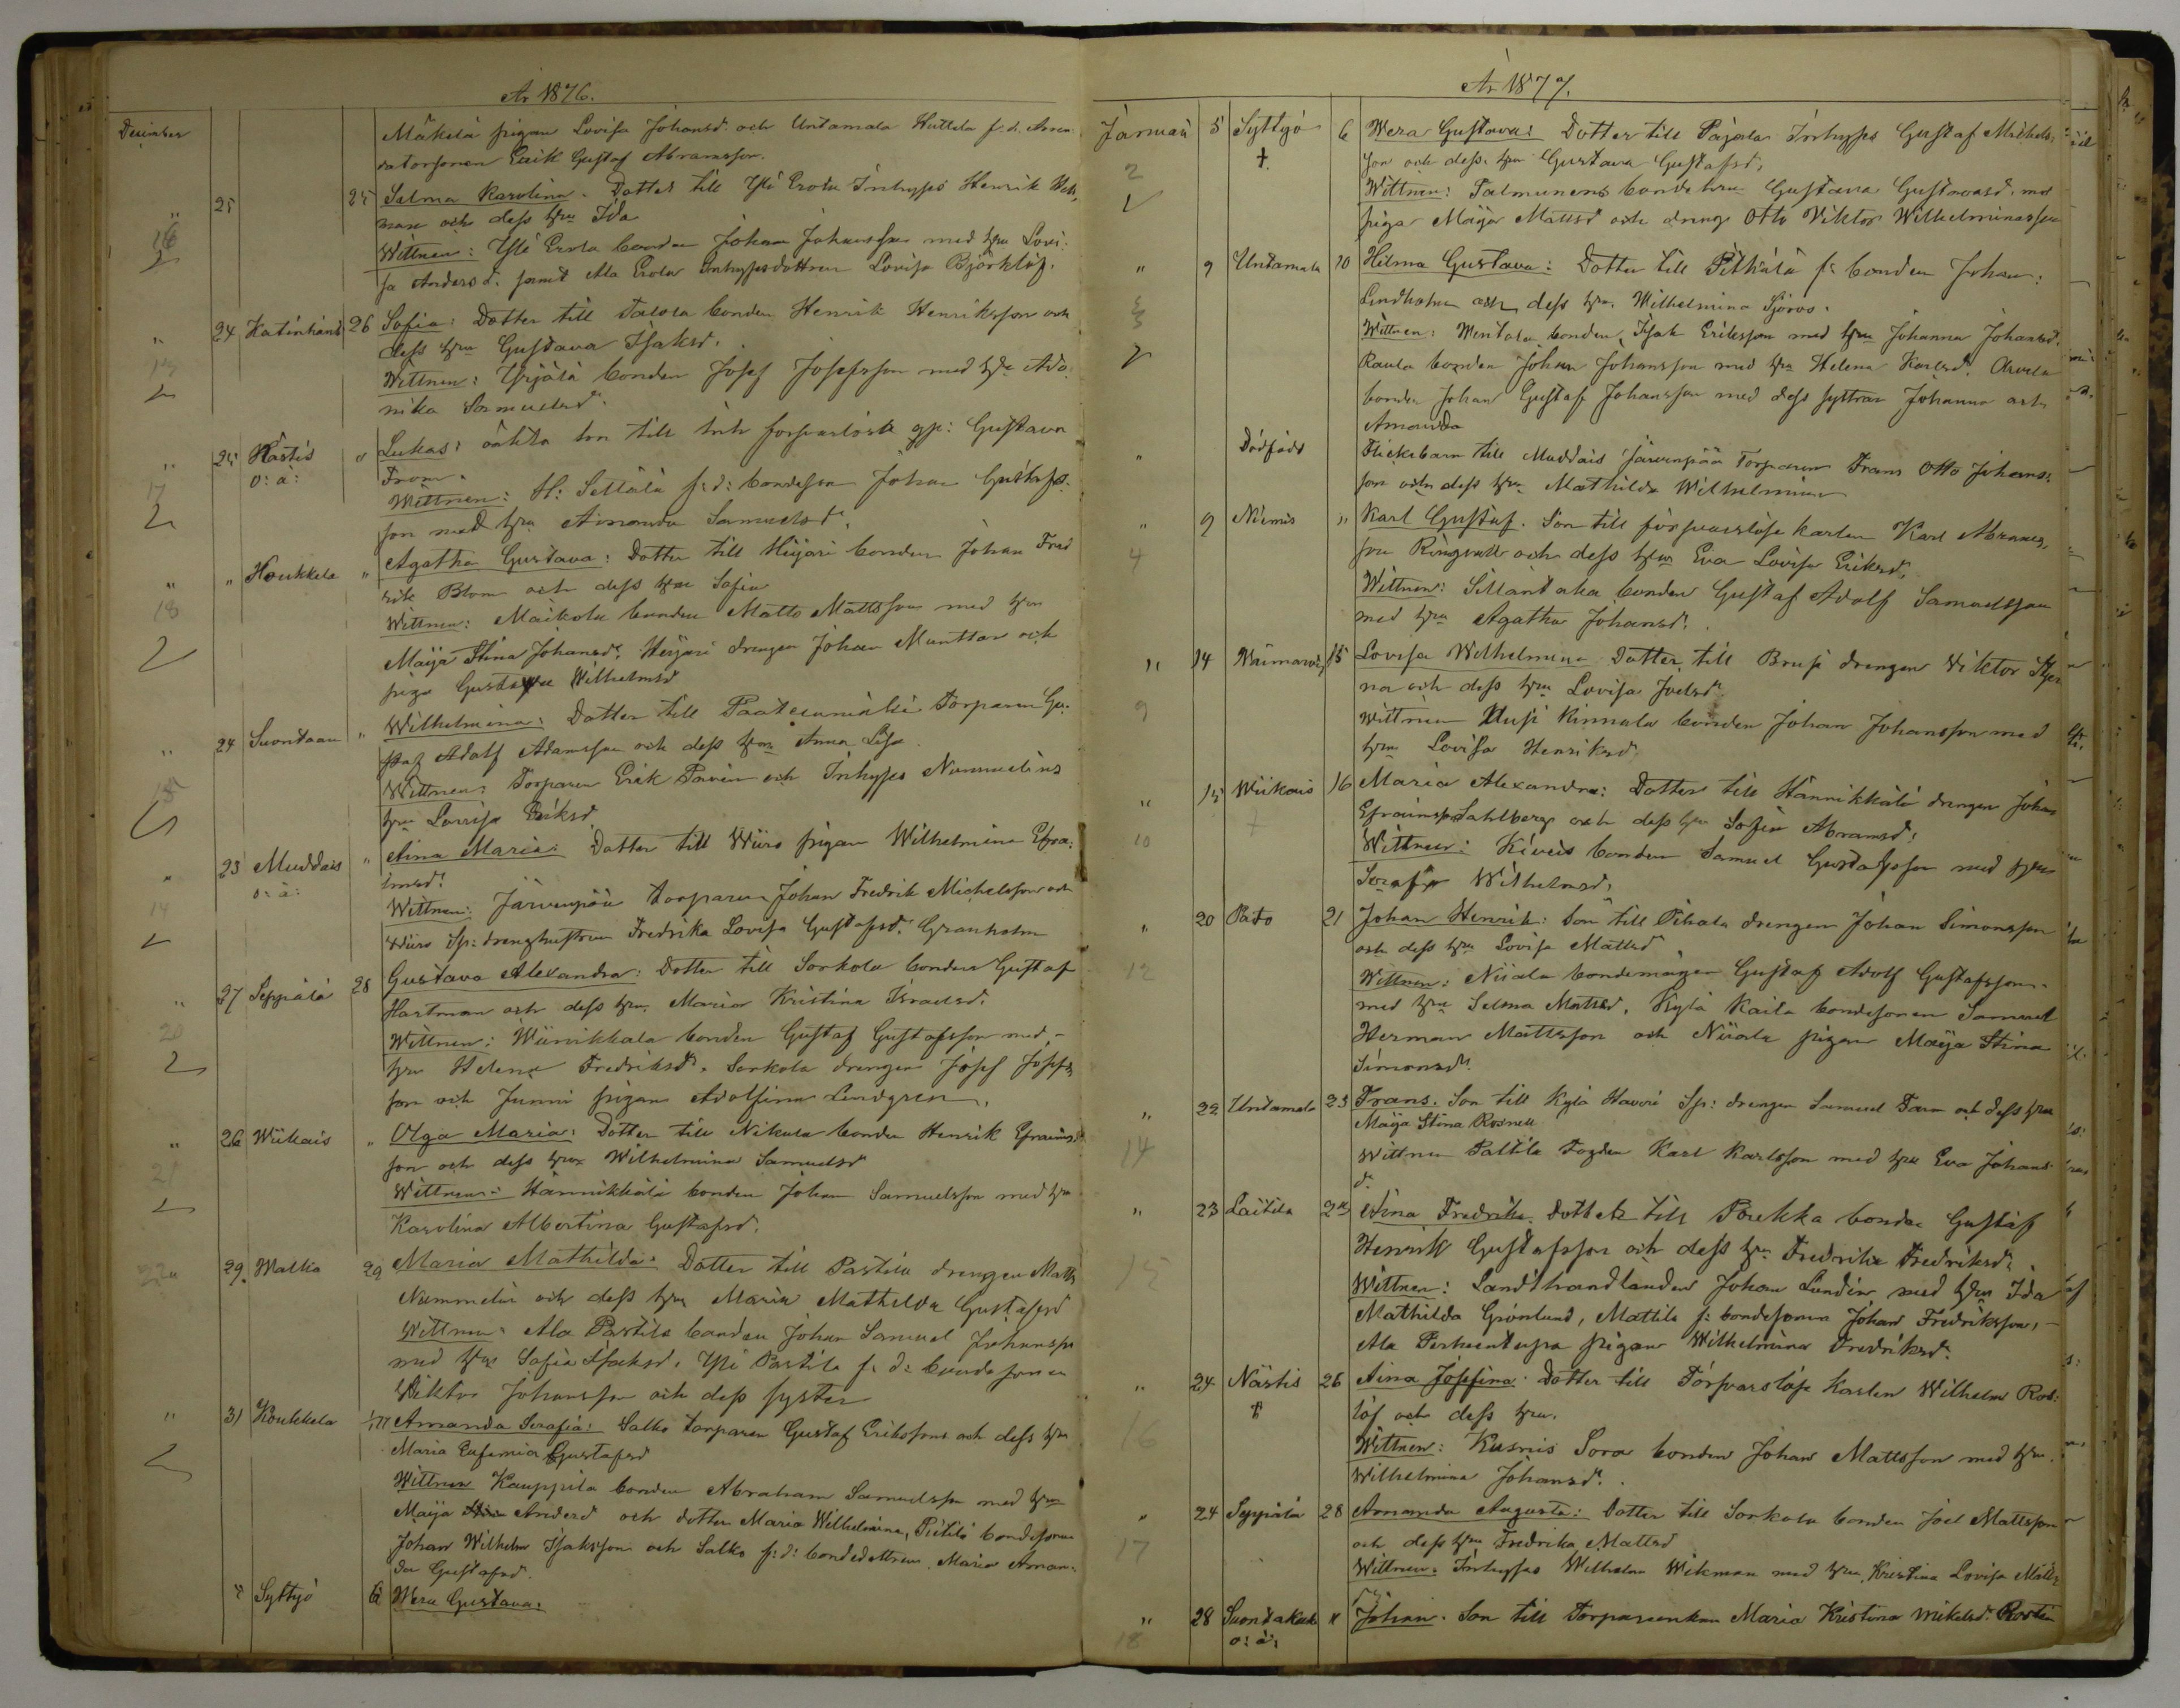 År 1876.
December
Mäkelä pigan Lovisa Johansd. och Untamala Huttula f. d. Arren-
datorsonen Erik Gustaf Abramsson.
" 25 25 Selma Karolina. Dotter till Yli Erola Inhyses Henrik
man och dess hru Ida
16
Wittnen: Yli Erola bonden Johan Johansson med hru Lovi-
sa Andersd. samt Ala Erola Inhysesdottren Lovisa Björklöf.
" 24 Katinhänt 26 Sofia: Dotter till Talola bonden Henrik Henriksson och
dess hru Gustava Isaksd.
Wittnen: Yrjälä bonden Josef Josefsson med hru
nika Samuelsd.
" 25 " Lukas: oäkta son till Inh försvarslösk qp: Gustava
o: ä:
From.
17
Wittnen: H: Settälä f: d: bondeson Johan Gustafs-
son med hru Amanda Samuelsd.
" " Koukkela " Agatha Gustava: Dotter till Heijari bonden Johan Fred
rik Blom och dess hru Sofia
18
Wittnen: Maikola bonden Matts Mattsson med hru
Maija Stina Johansd. Heijari drengen Johan Munttar och
piga Gustava Wilhelmsd
" 24 Suontaan " Wilhelmina: Dotter till Torparen Gu-
staf Adolf Adamsson och dess hru Anna Lisa
Wittnen: Torparen Erik och Inhyses Nummelins
hru Lovisa Eriksd
" 23 Muddais " Aina Maria: Dotter till Wiiro pigan Wilhelmina Efra-
o: ä:
imsd.
14
Wittnen: Järvenpää torparen Johan Fredrik Michelsson och
Wiiro Sp: drenghustrun Fredrika Lovisa Gustafsd. Granholm
" 27 Seppälä 28 Gustava Alexandra: Dotter till Sorkola bonden Gustaf
Hartman och dess hru Maria Kristina Israelsd.
20
Wittnen: Wiinikkala bonden Gustaf Gustafsson med
hru Helena Fredriksd. Sorkola drengen Josef Josefs-
son och Junni pigan Adolfina Lindgren.
" 26 Wiikais " Olga Maria: Dotter till Nikula bonden Henrik Efraims-
son och dess hru Wilhelmina Samuelsd
21
Wittnen: Hännikkälä bonden Johan Samuelsson med hru
Karolina Albertina Gustafsd.
29. Walko 29 Maria Mathilda: Dotter till Pastila drengen Matts
Nummelin och dess hru Maria Mathilda Gustafsd
Wittnen: Ala Pastila bonden Johan Samuel Johansson
med hru Sofia Isaksd. Yli Pastila f: d: bondesonen
Viktor Johansson och dess syster
" 31 Koukkela Amanda Serafia: Salko torparen Gustaf Eriksson och dess hru
Maria Eufemia Gustafsd
Wittnen Kauppila bonden Abraham Samuelsson med hru
Maija Andersd och dotter Maria Wilhelmina, Pietilä bondesonen
Johan Wilhelm Isaksson och Salko f: d: bondedottren Maria Aman-
da Gustafsd.
" Syttyö 6 Wera Gustava:
År 1877.
Januari 5 Syttyö 6 Wera Gustava: Dotter till Pajala Inhyses Gustaf Michels-
son och dess hru Gustava Gustafsd.
2
Wittnen: Talmunens bondehru Gustava Gustavsd. med
piga Maija Mattsd och dreng Otto Viktor Wilhelminasson
" 9 Untamala 10 Hilma Gustava: Dotter till Pitkälä f: bonden Johan
Lindholm och dess hru Wilhelmina Sjöros.
3
Wittnen: Wentola bonden Isak Eriksson med hru Johanna Johansd.
Raula bonden Johan Johansson med hru Helena Karlsd. Arvela
bonden Johan Gustaf Johansson med dess systrar Johanna och
Amanda
" Dödfödd Flickebarn till Muddais Järvenpää Torparen Frans Otto Johans-
son och dess hru Mathilda Wilhelmina
" 9 Niemis " Karl Gustaf. Son till försvarslöse karlen Karl Abrams-
son Ringvall och dess hru Eva Lovisa Eriksd.
4
Wittnen: Sillantaka bonden Gustaf Adolf Samuelsson
med hru Agatha Johansd.
" 14 15 Lovisa Wilhelmina Dotter till Brusi drengen Viktor Stjer
na och dess hru Lovisa Joelsd
9
Wittnen Uusi Kinnala bonden Johan Johansson med
hru Lovisa Henriksd
" 15 Wiikais 16 Maria Alexandra: Dotter till Hännikkälä drengen Johan
Efraimss Sahlberg och dess hru Sofia Abramsd.
10
Wittnen: Kiveis bonden Samuel Gustafsson med hru
Serafia Wilhelmsd.
" 20 Pato 21 Johan Henrik: Son till Pihala drengen Johan Simonsson
och dess hru Lovisa Mattsd
12
Wittnen: Niiala bondemågen Gustaf Adolf Gustafsson
med hru Selma Mattsd. Kylä Kaila bondesonen Samuel
Herman Mattsson och Niiala pigan Maija Stina
Simonsd.
" 22 Untamala 23 Frans. Son till Kylä Havvri Sp: drengen Samuel och dess hru
Maija Stina Rosnell
14
Wittnen Palttila Fogden Karl Karlsson med hru Eva Johans-
d.
" 23 Laitila 24 Aina Fredrika. Dotter till Poukka bonden Gustaf
Henrik Gustafsson och dess hru Fredrika Fredriksd.
15
Wittnen: Landthandlanden Johan Lundén med hru Ida
Mathilda Grönlund, Mattila f: bondesonen Johan Fredriksson,
Ala Perheentupa pigan Wilhelmina Fredriksd.
" 24 Nästis 26 Aina Josefina. Dotter till Försvarslöse Karlen Wilhelm Ros-
löf och dess hru.
16
Wittnen: Kusnis Sora bonden Johan Mattsson med hru
Wilhelmina Johansd.
" 24 Seppälä 28 Amanda Augusta: Dotter till Sorkola bonden Joel Mattsson
och dess hru Fredrika Mattsd
17
Wittnen: Inhyses Wilhelm Wikman med hru Kristina Lovisa
" 28 Suontakak " Johan. Son till Torparenkan Maria Kristina Mikelsd.
18 o: ä: